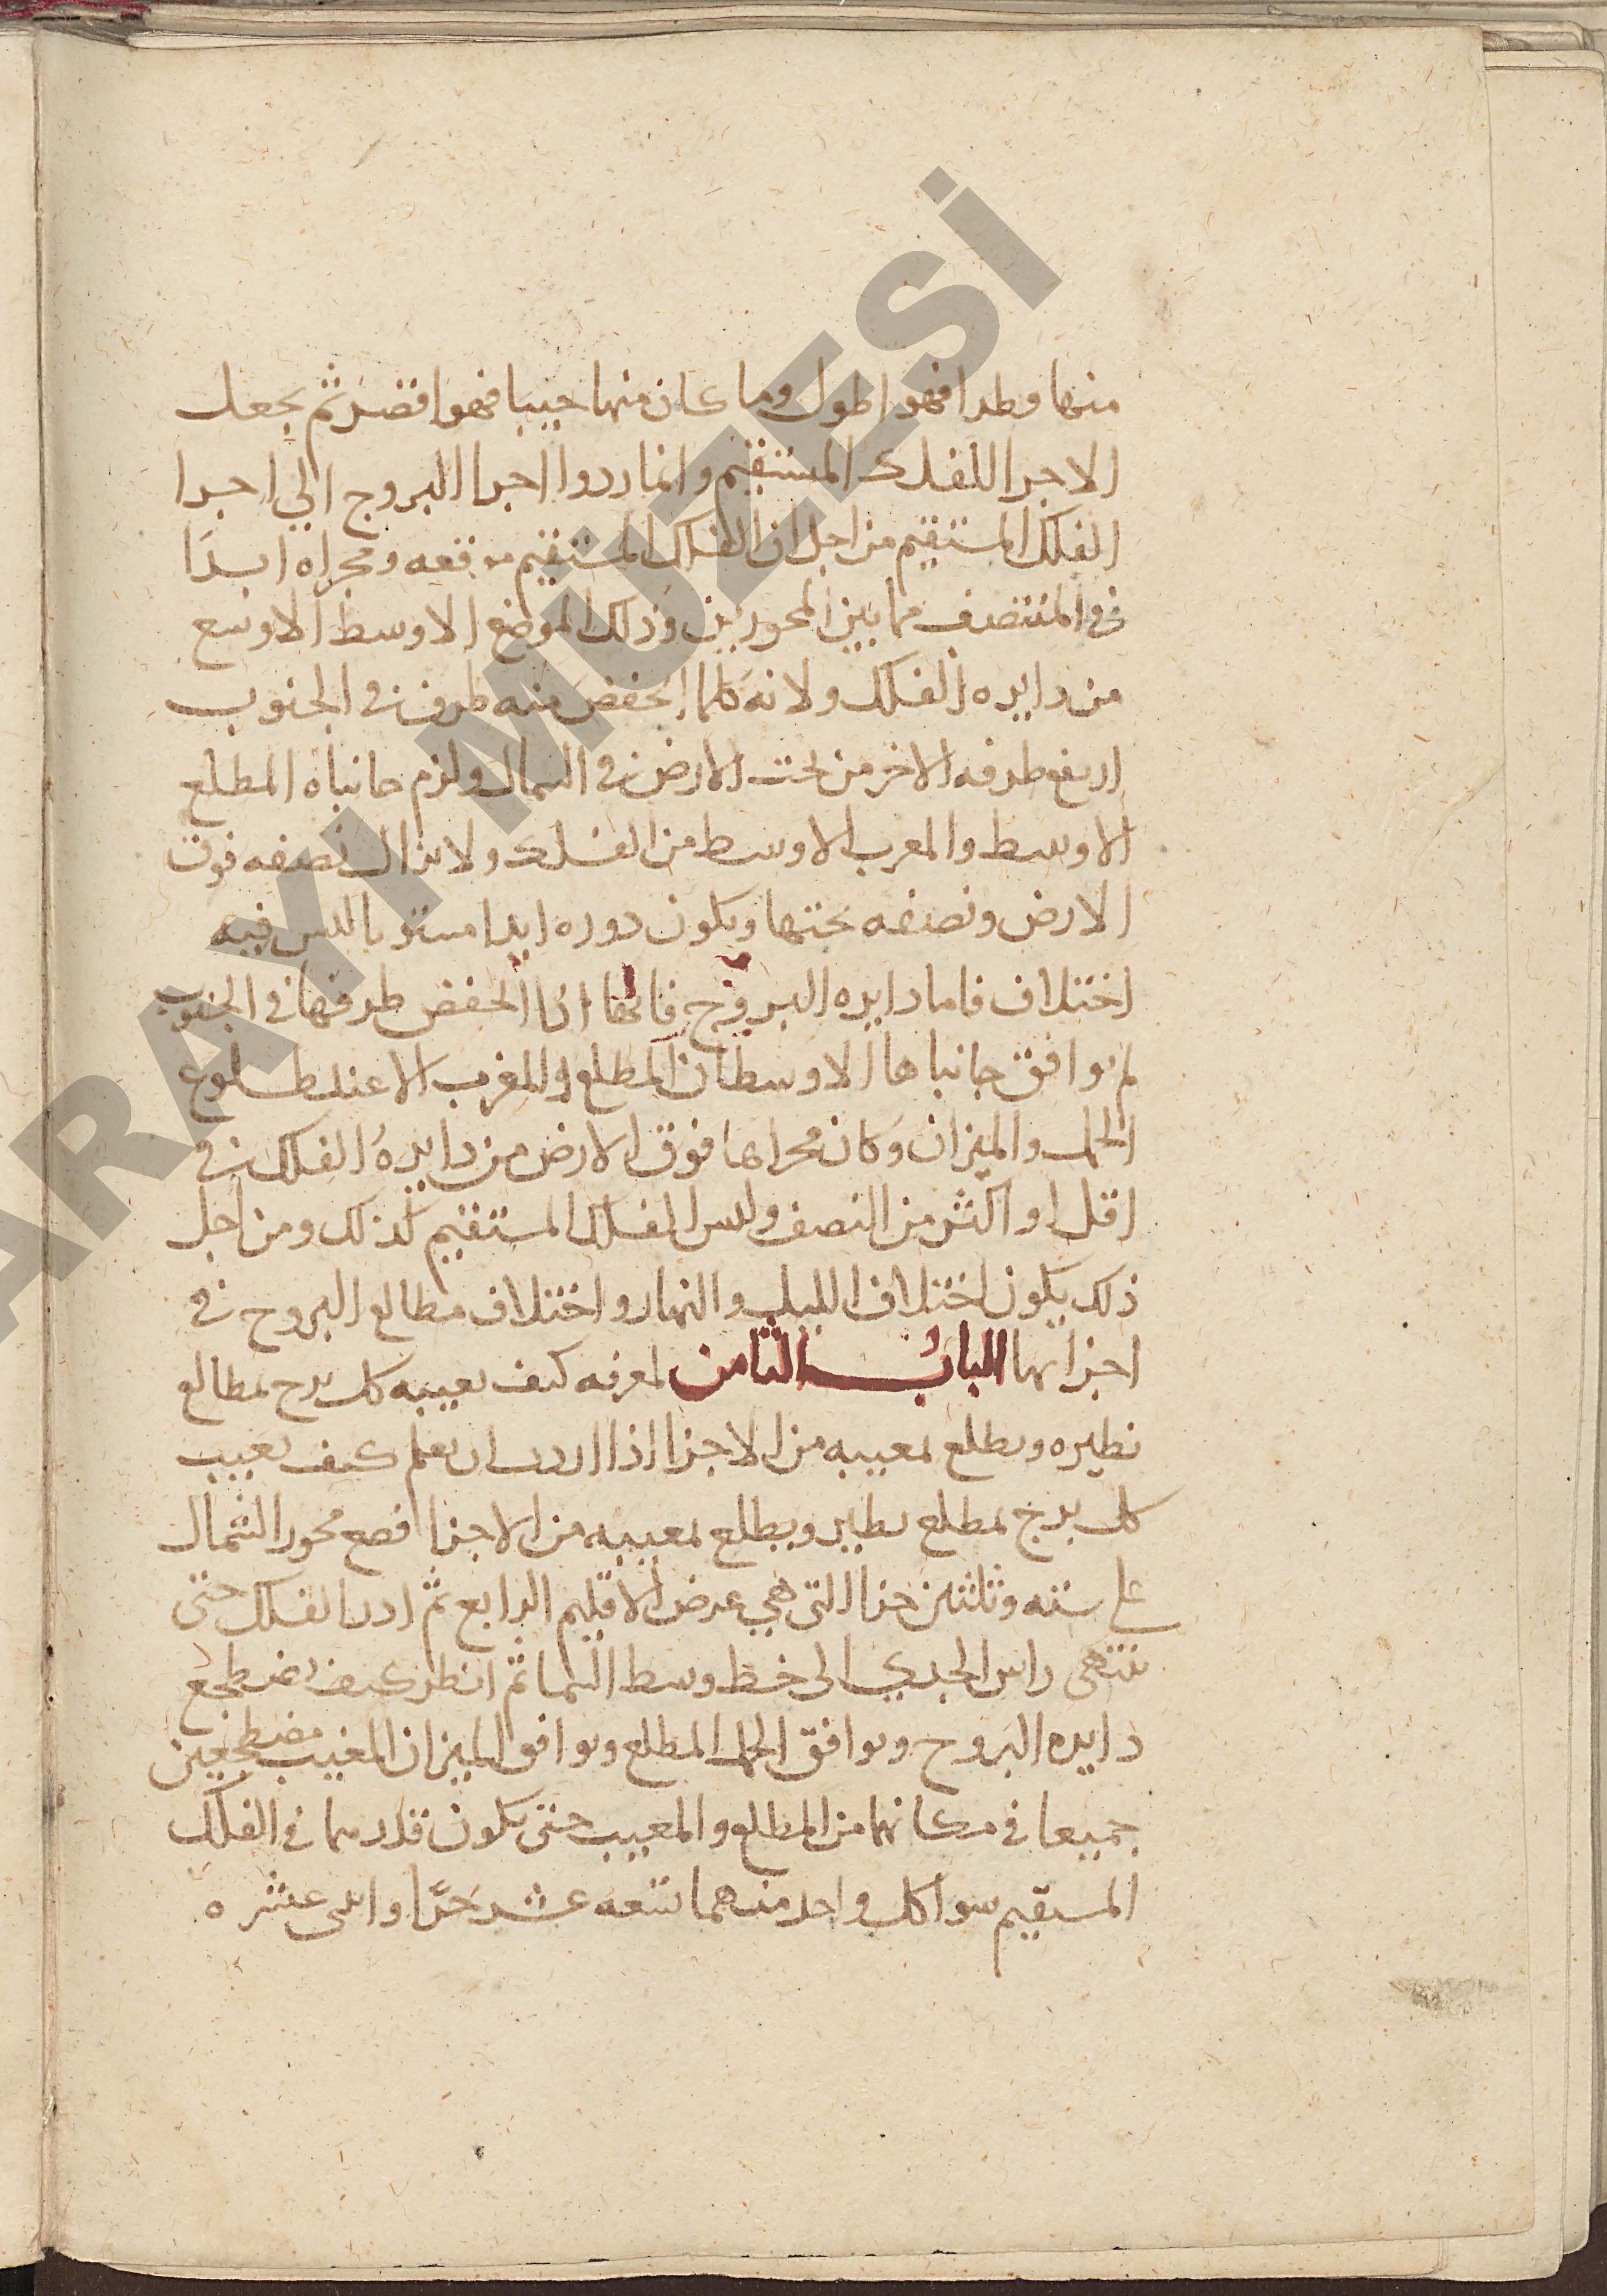 منها وطرا فهو اطول وما كان منها جيبا فهو اقصر ثم يجعل
الاجرا للفلك المستقيم وانما ردوا اجرا البروج الي اجرا
الفلك المستقيم من اجل ان الفلك المستقيم موقعه ومجراه ابدًا
في المنتصف مما بين المحورين وذلك الموضع الاوسط الاوسع
من دايره الفلك ولانه كلما انخفض منه طرف في الجنوب
ارتفع طرفه الاخر من تحت الارض في الشمال ولزم جانباه المطلع
الاوسط والمغرب الاوسط من الفلك ولا يزال نصفه فوق
الارض ونصفه تحتها ويكون دوره ابدا مستويا ليس فيه
اختلاف فاما دايره البروج فانها اذا انخفض طرفها في الجنوب
لم يوافق جانباها الاوسطان المطلع والمغرب الا عند طلوع
الحمل والميزان وكان مجراها فوق الارض من دايره الفلك في
اقل او اكثر من النصف وليس الفلك المستقيم كذلك ومن اجل
ذلك يكون اختلاف الليل والنهار واختلاف مطالع البروج في
اجزايها الباب الثامن لمعرفه كيف يغيب كل برج بمطالع
نظيره ويطلع بمغيبه من الاجزا اذا اردت ان تعلم كيف يغيب
كل برج بمطلع نظيره ويطلع بمغيبه من الاجزا فضع محور الشمال
على سته وثلثين جزا التي هي عرض الاقليم الرابع ثم ادر الفلك حتى
ينتهى راس الجدي الى خط وسط السما ثم انظر كيف تضطجع
دايره البروج ويوافق الحمل المطلع ويوافق الميزان المغيب مضطجعين
جميعا في مكانهما من المطلع والمغيب حتى يكون قدرهما في الفلك
المستقيم سوا كل واحد منهما تسعه عشر جزًا واثنى عشره
ARAYI MÜZESİ